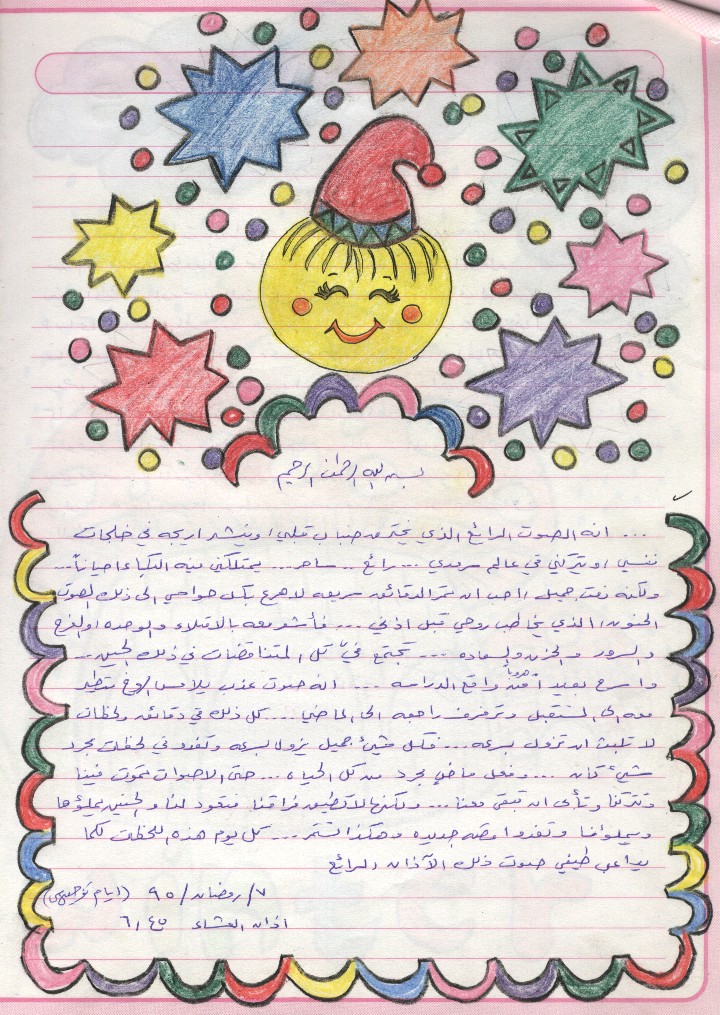 بسم الله الرحمن الرحيم
... انه الصوت الرائع الذي يخترق ضباب قلبي وينشر اريجه في خلجات
نفسي ويتركني في عالم سرمدي ... رائع .. ساحر... يمتلكني فيه البكاء احياناً...
ولكنه نغت جميل احب ان تمر الدقائق سريعه لاهرع بكل حواسي الى ذلك الصوت
الحنون الذي يخاطب روحي قبل اذني ... فأشعر معه بالامتلاء والوحده او الفرح
والسرور والحزن والسعاده ... تجتمع فيّ كل المتناقضات في ذلك الحين...
واسرح بعيد من واقع الدراسه .... انه صوت عذب يلامس الروح فتطير
معه الى المستقبل وترفرف راجعه الى الماضي ... كل ذلك في دقائق ولحظات
لا تلبث ان تزول بسرعه ... فكل شيئ جميل يزول بسرعه وتغدو في لحظات مجرد
شيئ كان ... وفعل ماضي مجرد من كل الحياه ... حتى الاصوات تموت فينا
وتتركنا وتأبى ان تبقى معنا ... ولكنها لا تطيق فراقنا فتعود لنا والحنين يملؤها
ويملؤنا وتغدوا قصه جديده وهكذا تستمر ... كل يوم هذه اللحظات كلما
يداعب طيفي صوت ذلك الآذان الرائع
٧/ رمضان / ٩٥ (ايام توجيهي)
اذان العشاء ٦,٤٥